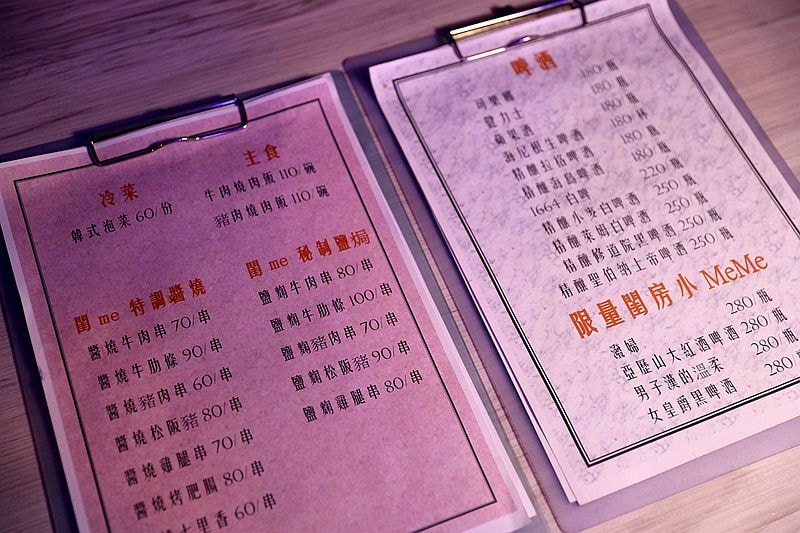 冷菜
韓式泡菜 60/份
主食
牛肉燒肉飯 110/碗
豬肉燒肉飯 110/碗
閨 me 特調醬燒
醬燒牛肉串 70/串
醬燒牛肋條 90/串
醬燒豬肉串 60/串
醬燒松阪豬 80/串
醬燒雞腿串 70/串
醬燒烤肥腸 80/串
七里香 60/串
閨 me 秘制鹽焗
鹽焗牛肉串 80/串
鹽焗牛肋條 100/串
鹽焗豬肉串 70/串
鹽焗松阪豬 90/串
鹽焗雞腿串 80/串
啤酒
可樂娜 180/瓶
健力士 180/瓶
蘋果酒 180/瓶
海尼根生啤酒 180/杯
精釀拉格啤酒 180/瓶
精釀海島啤酒 180/瓶
1664 白啤 220/瓶
精釀小麥白啤酒 250/瓶
精釀萊姆白啤酒 250/瓶
精釀修道院黑啤酒 250/瓶
精釀聖伯納土帝啤酒 250/瓶
限量閨房小 MeMe
潑婦 280/瓶
亞歷山大紅酒啤酒 280/瓶
男子漢的溫柔 280/瓶
女皇爵黑啤酒 280/